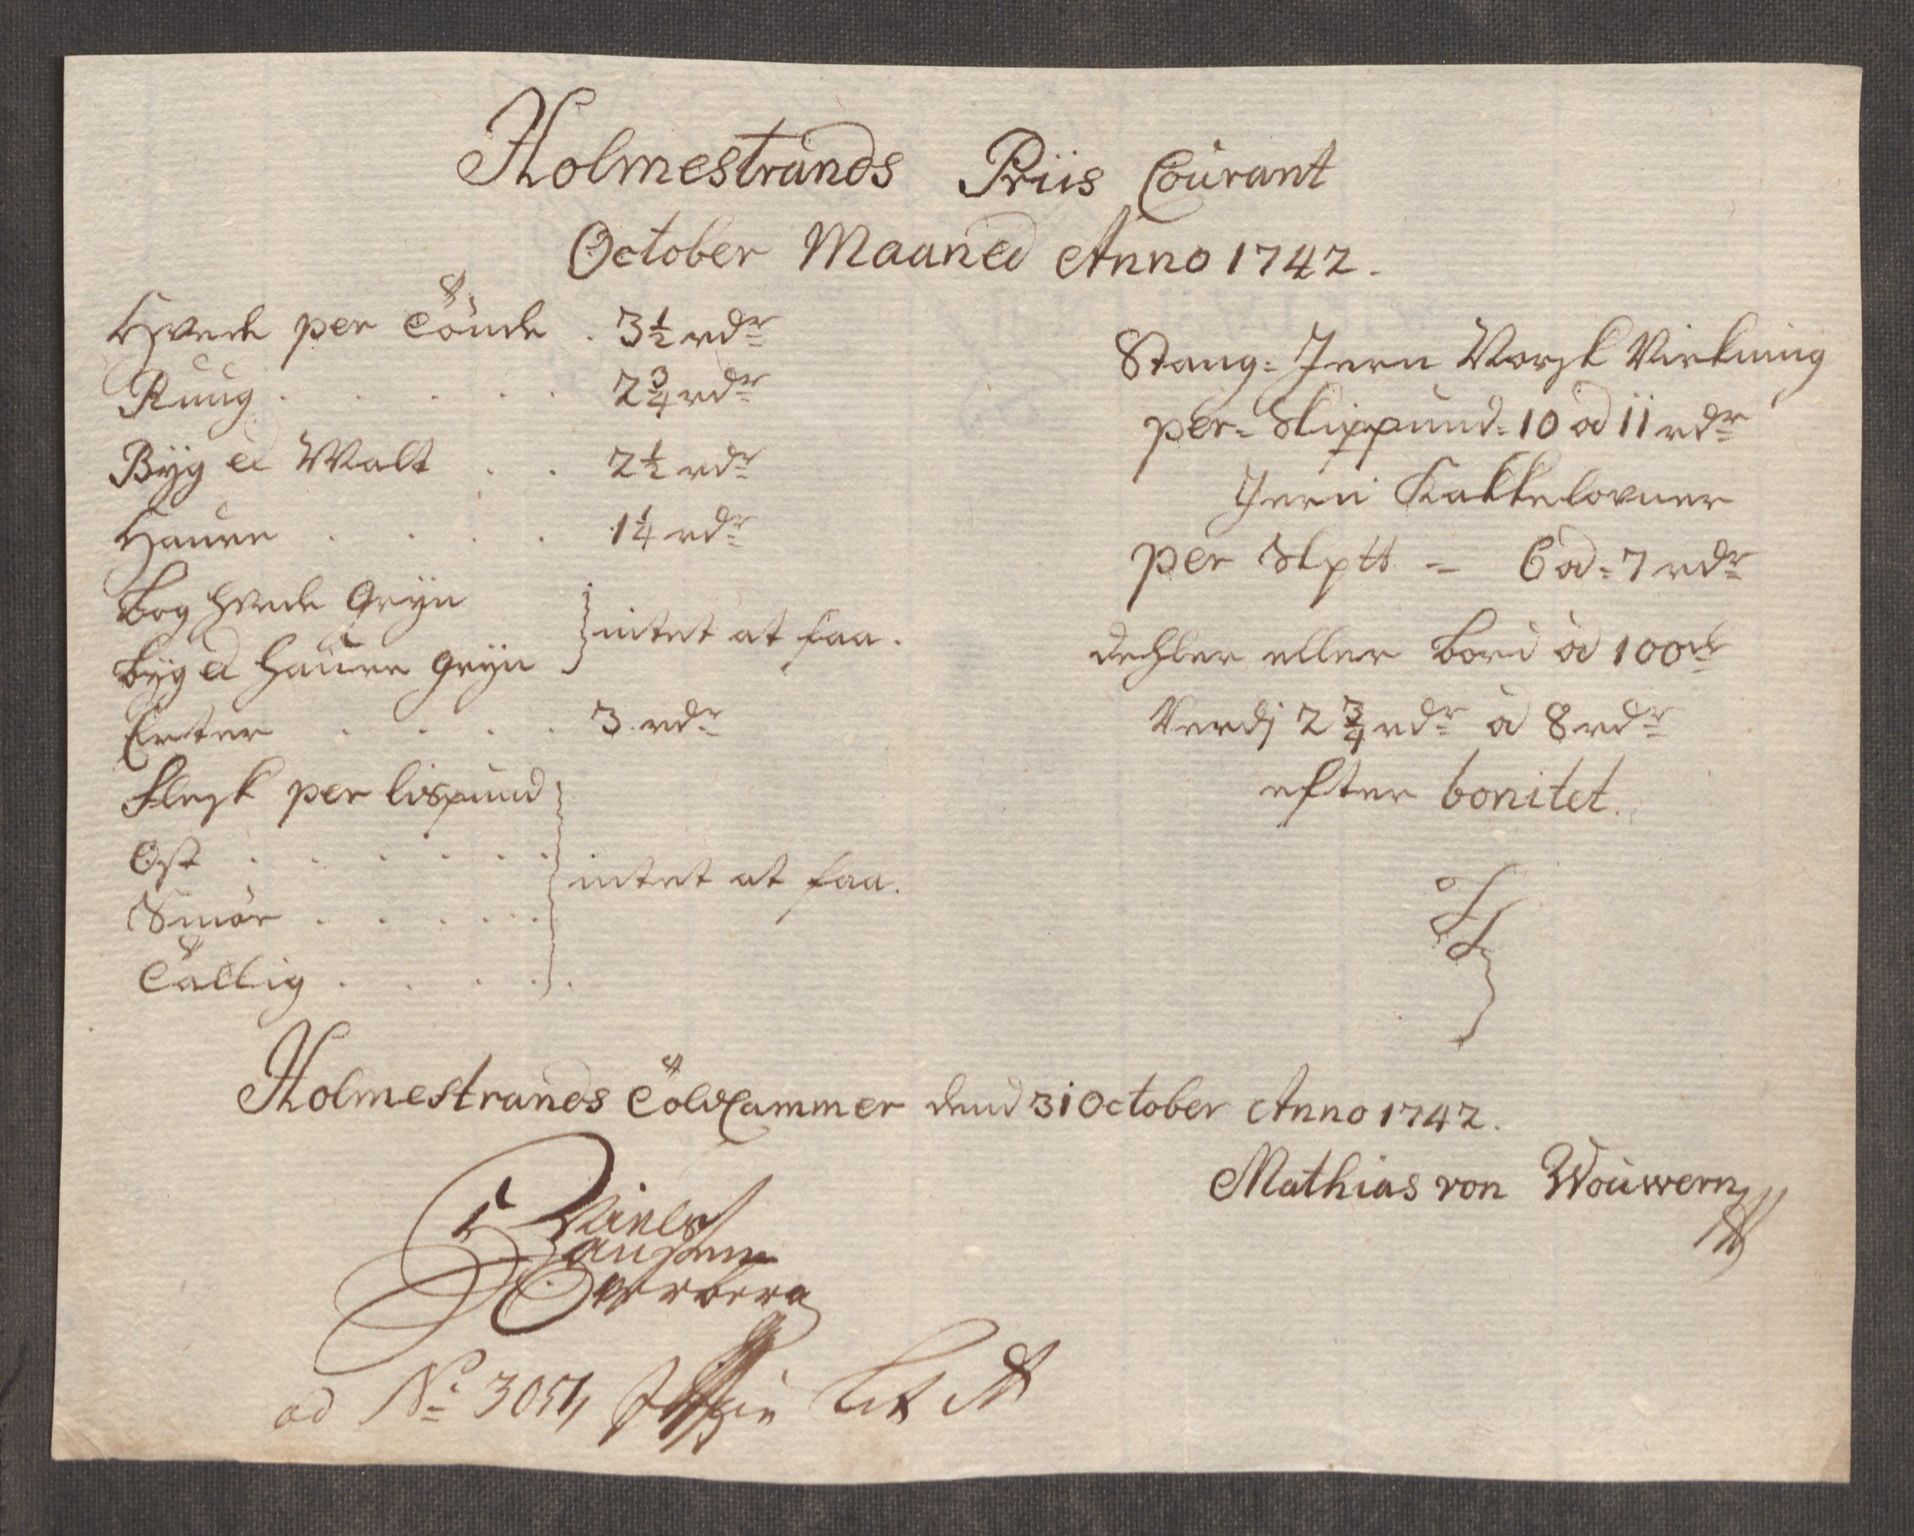 Holmestrands Priis Courant
October Maaned Anno 1742.
Hvede per Tönde . 3½ rdr
Ruug . . . . . 2¾ rdr
Byg et Malt . . 2½ rdr
Haure . . . . 1¼ rdr
Bog hvede Gryn
Byg et Haure gryn
intet at faa.
Erter . . . . 3 rdr
Flesk per Lispund
Ost . . . . . .
Smör . . . . . .
Tallig . . . . .
intet at faa.
Stang-Jern Norsk Virkning
per Skippund 10 ad 11 rdr
Jern Kakkelovner
per Skptt - 6 ad 7 rdr
dehler eller Bord ad 100de
Verdj 2¾ rdr ad 8 rdr
efter bonitet.
Holmestrands Toldcammer dend 31 October Anno 1742.
Mathias von Wouwern
Niels
Hansen
Overberg
ad No 3054 Lit A